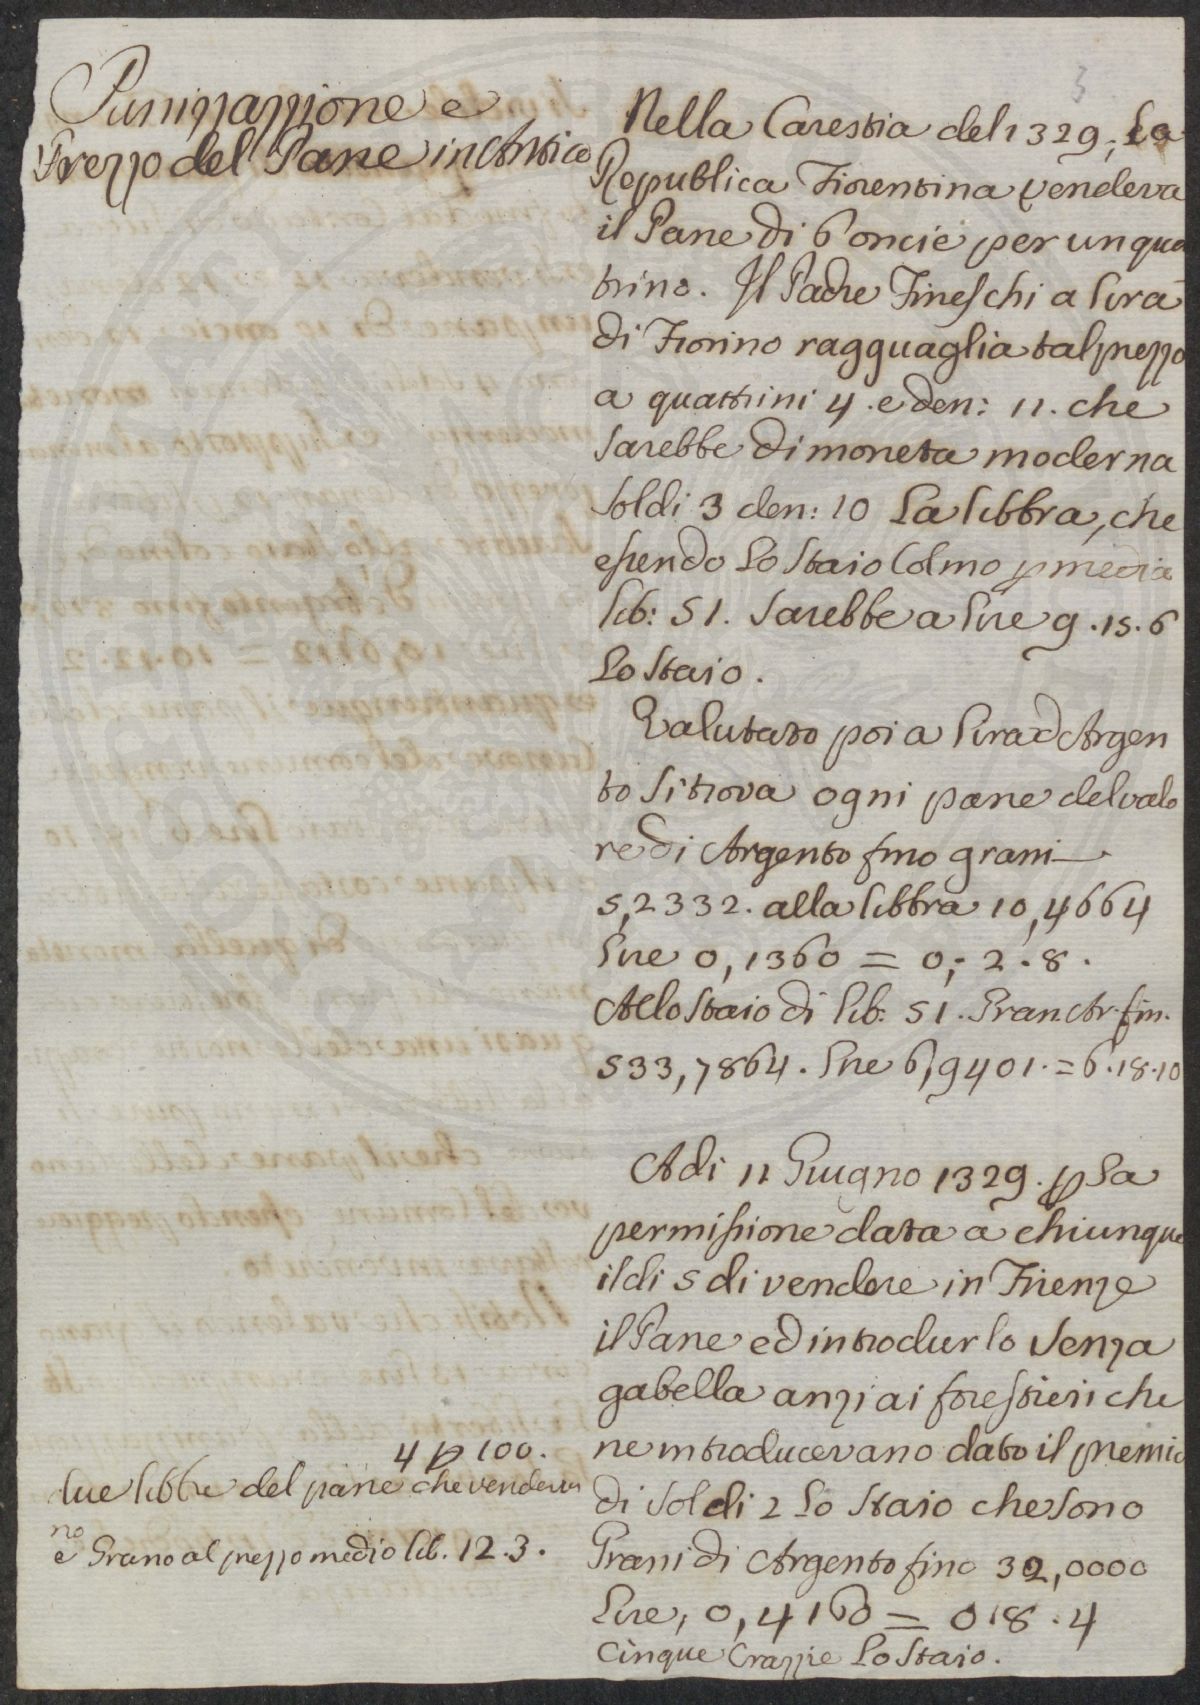 Panizzazzione e
Prezzo del Pane in Antico
3
Nella Carestia del 1329, La
Republica Fiorentina vendeva
il Pane di 6 oncie per un qua
trino. Il Padre Fineschi a lira
di Fiorino ragguaglia tal prezzo
a quattrini 4. e den: 11. che
sarebbe di moneta moderna
soldi 3 den: 10 La libbra, che
essendo Lo Staio Colmo p media
lib: 51. sarebbe a lire 9.15.6
Lo Staio.
Valutato poi a lira d'Argen
to si trova ogni pane del valo
re di Argento fino grani —
5,2332. alla libbra 10,4664
lire 0,1360 = 0,- 2.8.
Allo Staio di lib: 51. Gran. Ar. fin.
533,7864. lire 6,9401. = 6.18.10
Adi 11 Giugno 1329. p La
permissione data a chiunque
il di 5 di vendere in Firenze
il Pane ed introdurlo senza
gabella anzi ai forestieri che
ne introducevano dato il premio
di soldi 2 Lo Staio che sono
Grani di Argento fino 32,0000
Lire, 0,4160 = 0.8.4
cinque Crazzie Lo Staio.
4 p 100.
due libbre del pane che vendeva
no
e Grano al prezzo medio lib. 12.3.